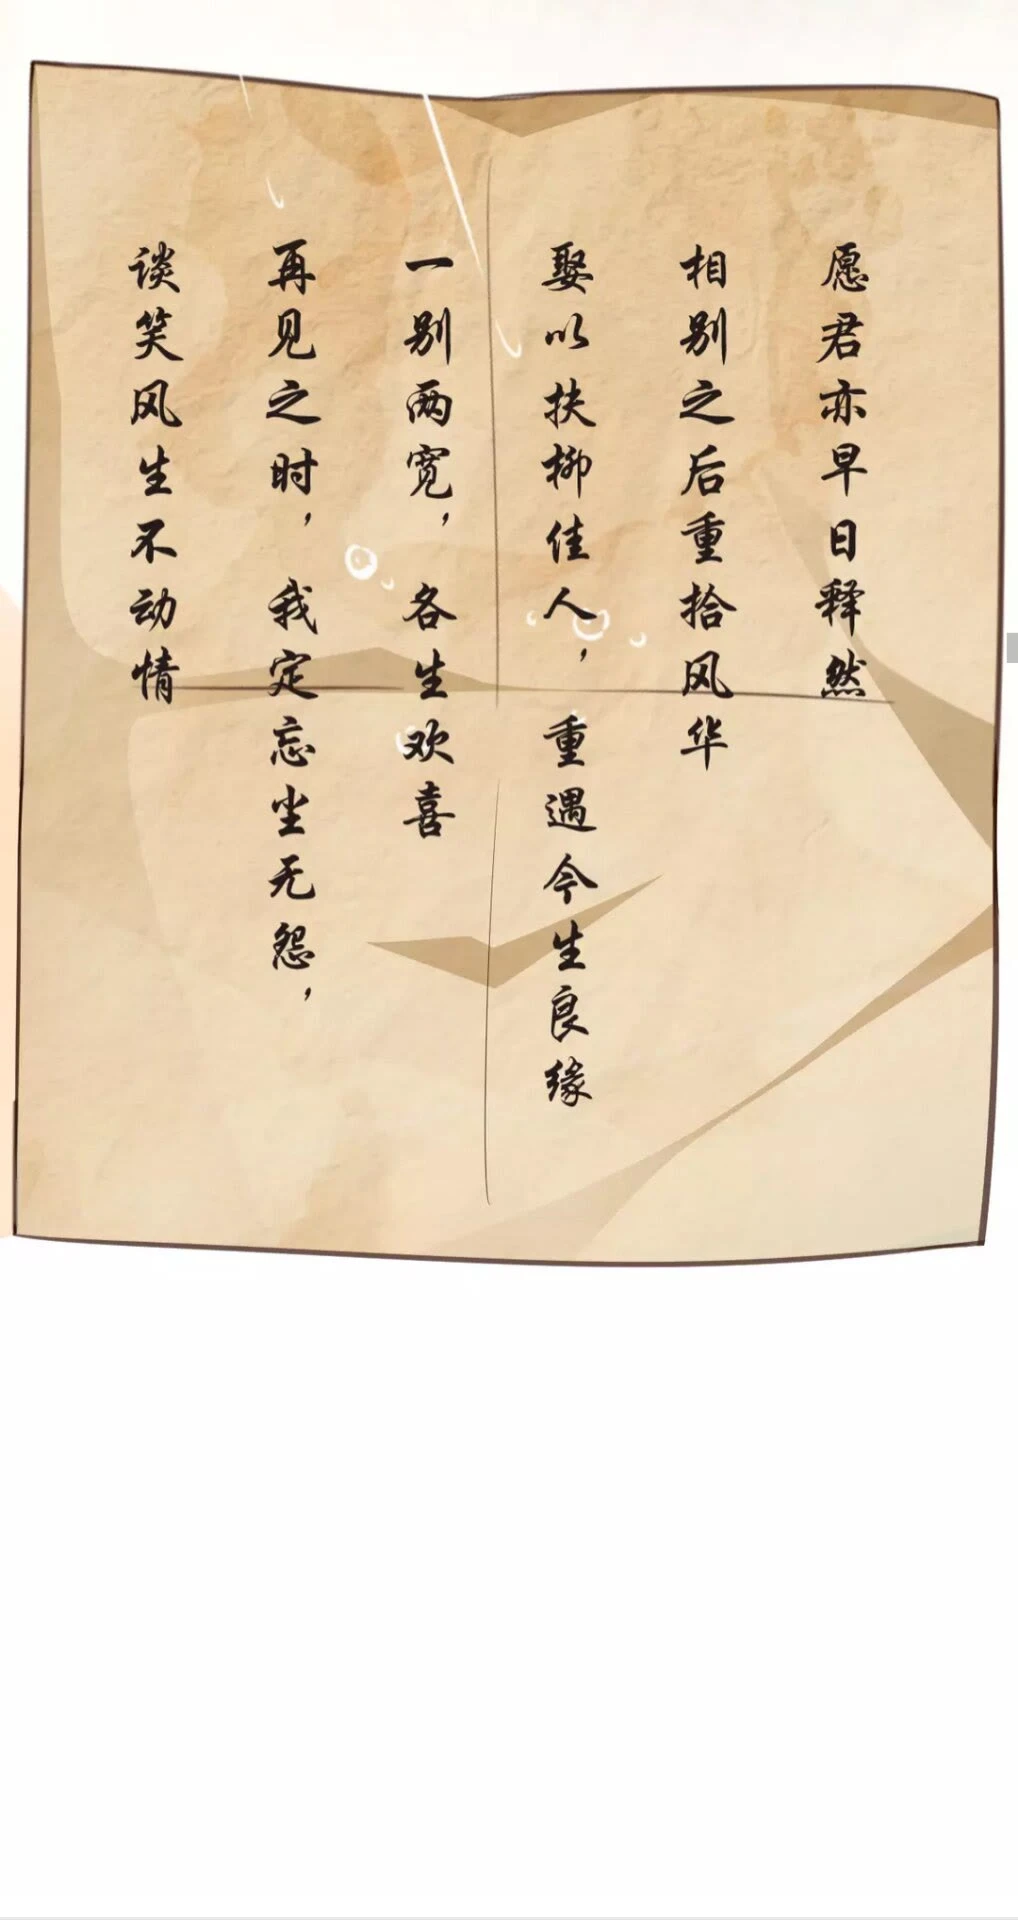 愿君亦早日释然
相别之后重拾风华
娶以扶柳佳人，重遇今生良缘
一别两宽，各生欢喜
再见之时，我定忘尘无怨，
谈笑风生不动情